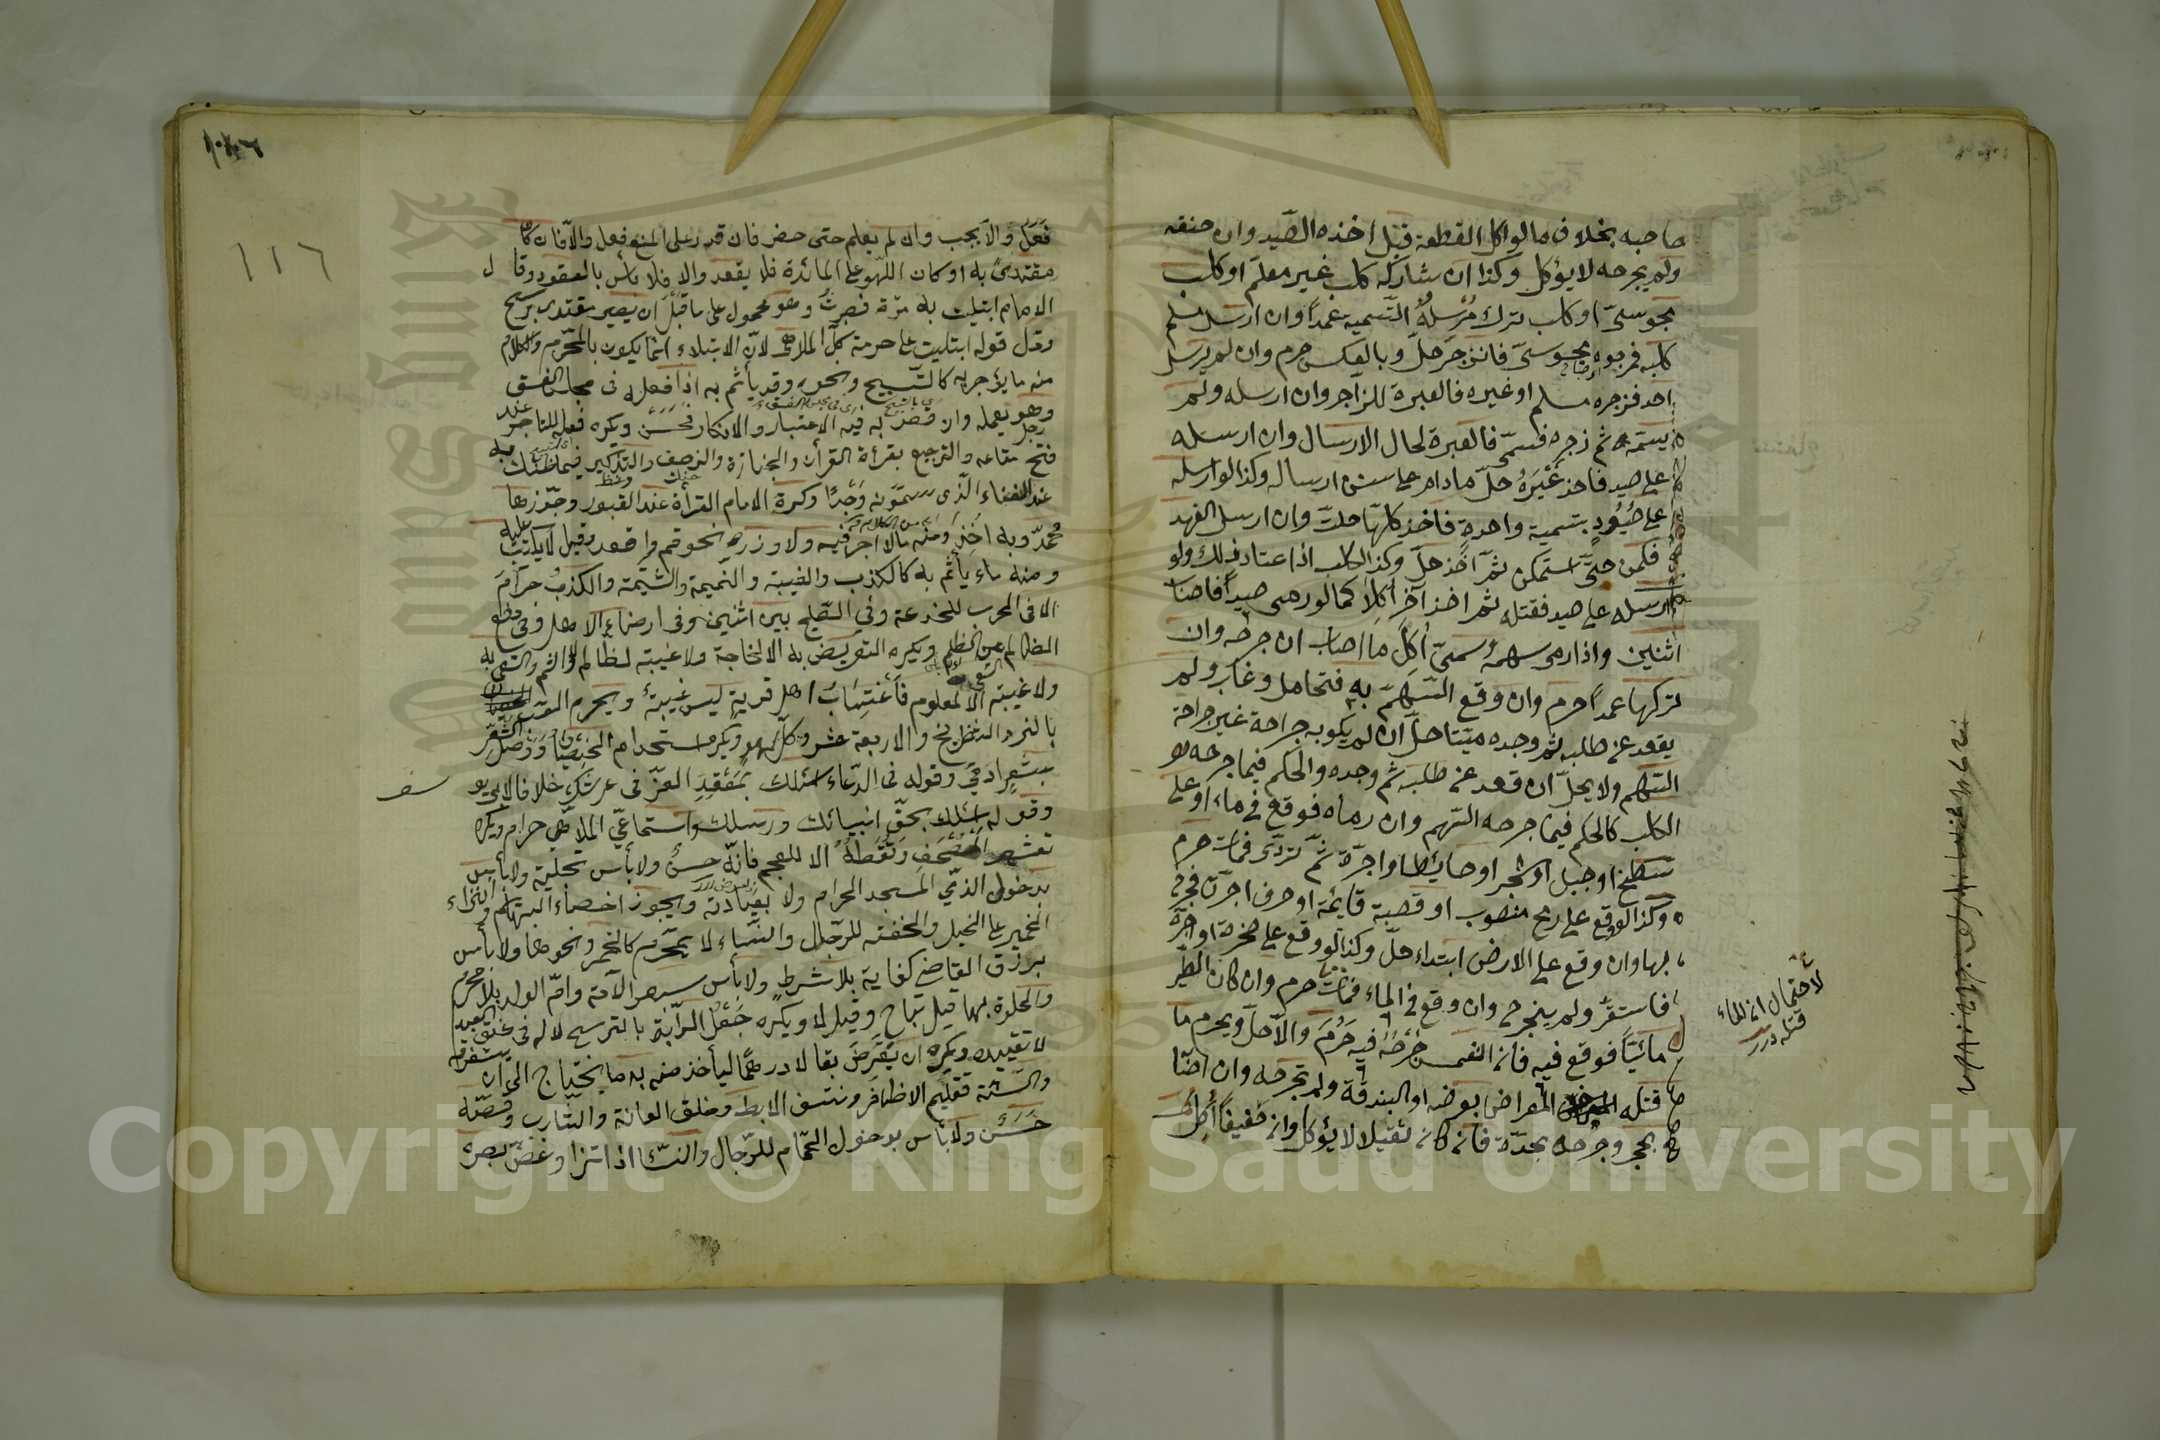 صاحبه بخلاف ما لو اكل القطعة قبل اخذه الصيد وان خنقه
ولم يجرحه لا يؤكل وكذا ان شاركه كلب غير معلم او كلب
مجوسىّ او كلب ترك مُرْسِلُهُ التسمية عمداً وان ارسل مسلم
كلبه فزجره مجوسىّ فانزجر حلّ وبالعكس حرم وان لم يرسل
احد فزجره مسلم او غيره فالعبرة للزاجر وان ارسله ولم
يسمّ ثم زجره فسمّى فالعبرة لحال الارسال وان ارسله
على صيد فاخذ غَيْرَهُ حلّ ما دام على سنن ارساله وكذا لو ارسله
على صُيُودٍ بتسمية واحدة فاخذ كلها حلت وان ارسل الفهد
فكمن حتى استمكن ثم اخذ حلّ وكذا الكلب اذا اعتاد ذلك ولو
ارسله على صيد فقتله ثم اخذ آخر اكلا كما لو رمى صيداً فاصاب
اثنين واذا رمى سهمه وسمّى اُكِلَ ما اصاب ان جرحه وان
تركها عمداً حرم وان وقع السهم به فتحامل وغاب ولم
يقعد عن طلبه ثم وجده ميتا حلّ ان لم يكن به جراحة غير جراحة
السهم ولا يحلّ ان قعد عن طلبه ثم وجده والحكم فيما جرحه
الكلب كالحكم فيما جرحه السهم وان رماه فوقع فى ماء او على
سطح او جبل او شجر او حايط او اجرّة ثم تردّى فمات حرم
وكذا لو وقع على رمح منصوب او قصبة قايمة او حرف اجرّة فجرح
بها وان وقع على الارض ابتداء حلّ وكذا لو وقع على صخرة او اجرّة
فاستقرّ ولم ينجرح وان وقع فى الماء فمات حرم وان كان الطير
مائيّاً فوقع فيه فان انغمس جُرْحُهُ فيه حَرُمَ والا حلّ ويحرم ما
قتله المعراض بعرضه او البندقة ولم تجرحه وان اصابه
بحجر وجرحه بحدّة فان كان ثقيلا لا يؤكل وان خفيفاً اُكِلَ
لاحتمال ان الماء
قتله درر
١١٦
فَعَلَ والا يجب وان لم يعلم حتى حضر فان قدر على المنع فعل والا فان كان
مقتدىً به او كان اللهو على المائدة فلا يقعد والا فلا بأس بالقعود وقال
الامام ابتليت به مرّة فصبرتُ وهو محمول على ما قبل ان يصير مقتدى
ودلّ قوله ابتليت على حرمة كلّ الملاهى لان الابتلاء انما يكون بالمحرّم والكلام
منه ما يؤجر به كالتسبيح ونحوه وقد يأثم به اذا فعله فى مجلس الفسق
وهو يعمله وان قصد به فيه الاعتبار والانكار فحَسَنٌ ويكره فعله للتاجر عند
فتح متاعه والترجيع بقرأة القرأن والجنازة والزحف والتذكير فما ظنك به
عند الغناء الذى يسمّونه وَجْداً وكره الامام القرأة عند القبور وجوّزها
محمّد وبه اُخِذَ ومنه ما لا اجر فيه ولا وزر نحو قم واقعد وقيل لا يكتب عليه
ومنه ما يأثم به كالكذب والغيبة والنميمة والشتيمة والكذب حرام
الا فى الحرب للخدعة وفى الصلح بين اثنين وفى ارضاء الاهل وفى دفع
الظالم عن الظلم ويكره التعريض به الا لحاجة ولا غيبة لظالم
ولا غيبة الا لمعلوم فاغتياب اهل قرية ليس غيبة ويحرم اللعب
بالنرد والشطرنج والاربعة عشر وكلّ لهو ويكره استخدام الخصيان ووصل الشعر
بشعر ادمىّ وقوله فى الدّعاء اسئلك بمَعْقِدِ العزّ من عرشك خلافا لابى يو
سف
وقوله اسئلك بحقّ انبيائك ورسلك واستماع الملاهى حرام ويكره
تعشير المصحف ونَقْطُهُ الا للعجم فانّه حسنٌ ولا بأس تحليته ولا بأس
بدخول الذمّى المسجد الحرام ولا بعيادته ويجوز اخصاء البهائم وانزاء
الحمير على الخيل والحقنة للرجال والنساء لا بمحرّم كالخمر ونحوها ولا بأس
برزق القاضى كفاية بلا شرط ولا بأس بسفر الامة وامّ الولد بلا محرم
والخلوة بها قيل تباح وقيل لا ويكره جَعْلُ الرّاية فى عنق العبد
لا تقييده ويكره ان يُقْرِضَ بقالا درهماً ليأخذ منه به ما يحتاج الى ان يستغرقه
والسّنة تقليم الاظافر ونتف الابط وحلق العانة والشارب وقصّه
حَسَنٌ ولا بأس بدخول الحمّام للرّجال والنساء اذا اتزر وغضّ بصره
Copyright © King Saud University